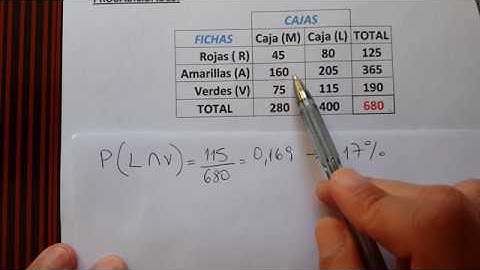 CAJAS
FICHAS Caja (M) Caja (L) TOTAL
Rojas ( R) 45 80 125
Amarillas (A) 160 205 365
Verdes (V) 75 115 190
TOTAL 280 400 680
P(L∩V) = 115/680 = 0,169 → 17%